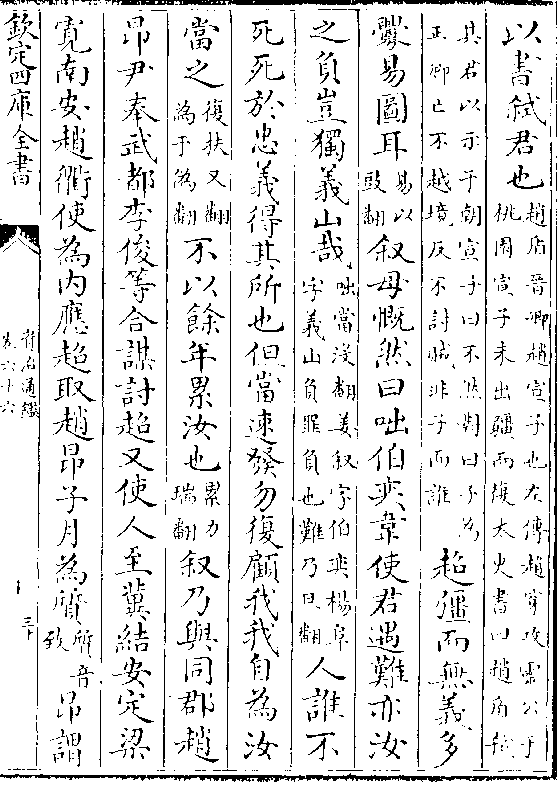 以書弑君也趙盾晉卿趙宣子也左傳趙穿攻靈公于桃園宣子未出疆而復太史書曰趙盾弑
其君以示于朝宣子曰不然對曰子為正卿亡不越境反不討賊非子而誰超彊而無義多
釁易圖耳易以豉翻叙母慨然曰咄伯奕韋使君遇難亦汝
之負豈獨義山哉咄當沒翻姜叙字伯奕楊阜字義山負罪負也難乃旦翻人誰不
死死於忠義得其所也但當速發勿復顧我我自為汝
當之復扶又翻為于偽翻不以餘年累汝也累力瑞翻叙乃與同郡趙
昂尹奉武都李俊等合謀討超又使人至冀結安定梁
寛南安趙衢使為内應超取趙昂子月為質質音致昂謂
欽定四庫全書
資治通鑑
卷六十六
三十